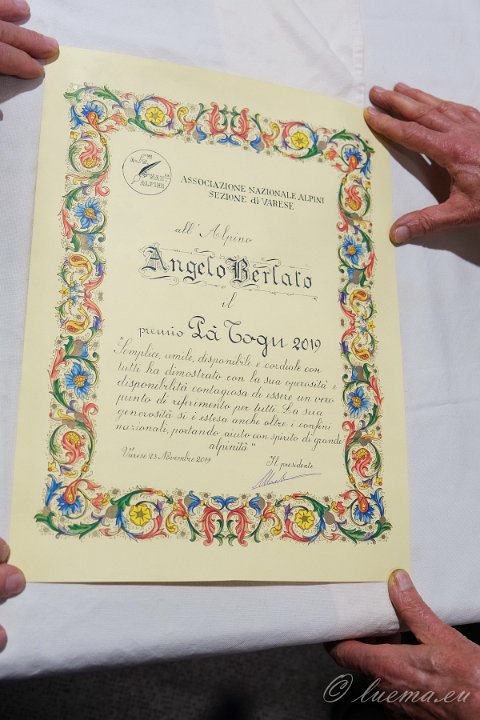 ASSOCIAZIONE NAZIONALE ALPINI
SEZIONE di VARESE
all'Alpino
Angelo Berlato
il
premio Pà Togn 2019
"Semplice, umile, disponibile e cordiale con
tutti ha dimostrato con la sua operosità e
disponibilità contagiosa di essere un vero
punto di riferimento per tutti. La sua
generosità si è estesa anche oltre i confini
nazionali, portando aiuto con spirito di grande
alpinità"
Varese 23 Novembre 2019
Il presidente
© luema.eu